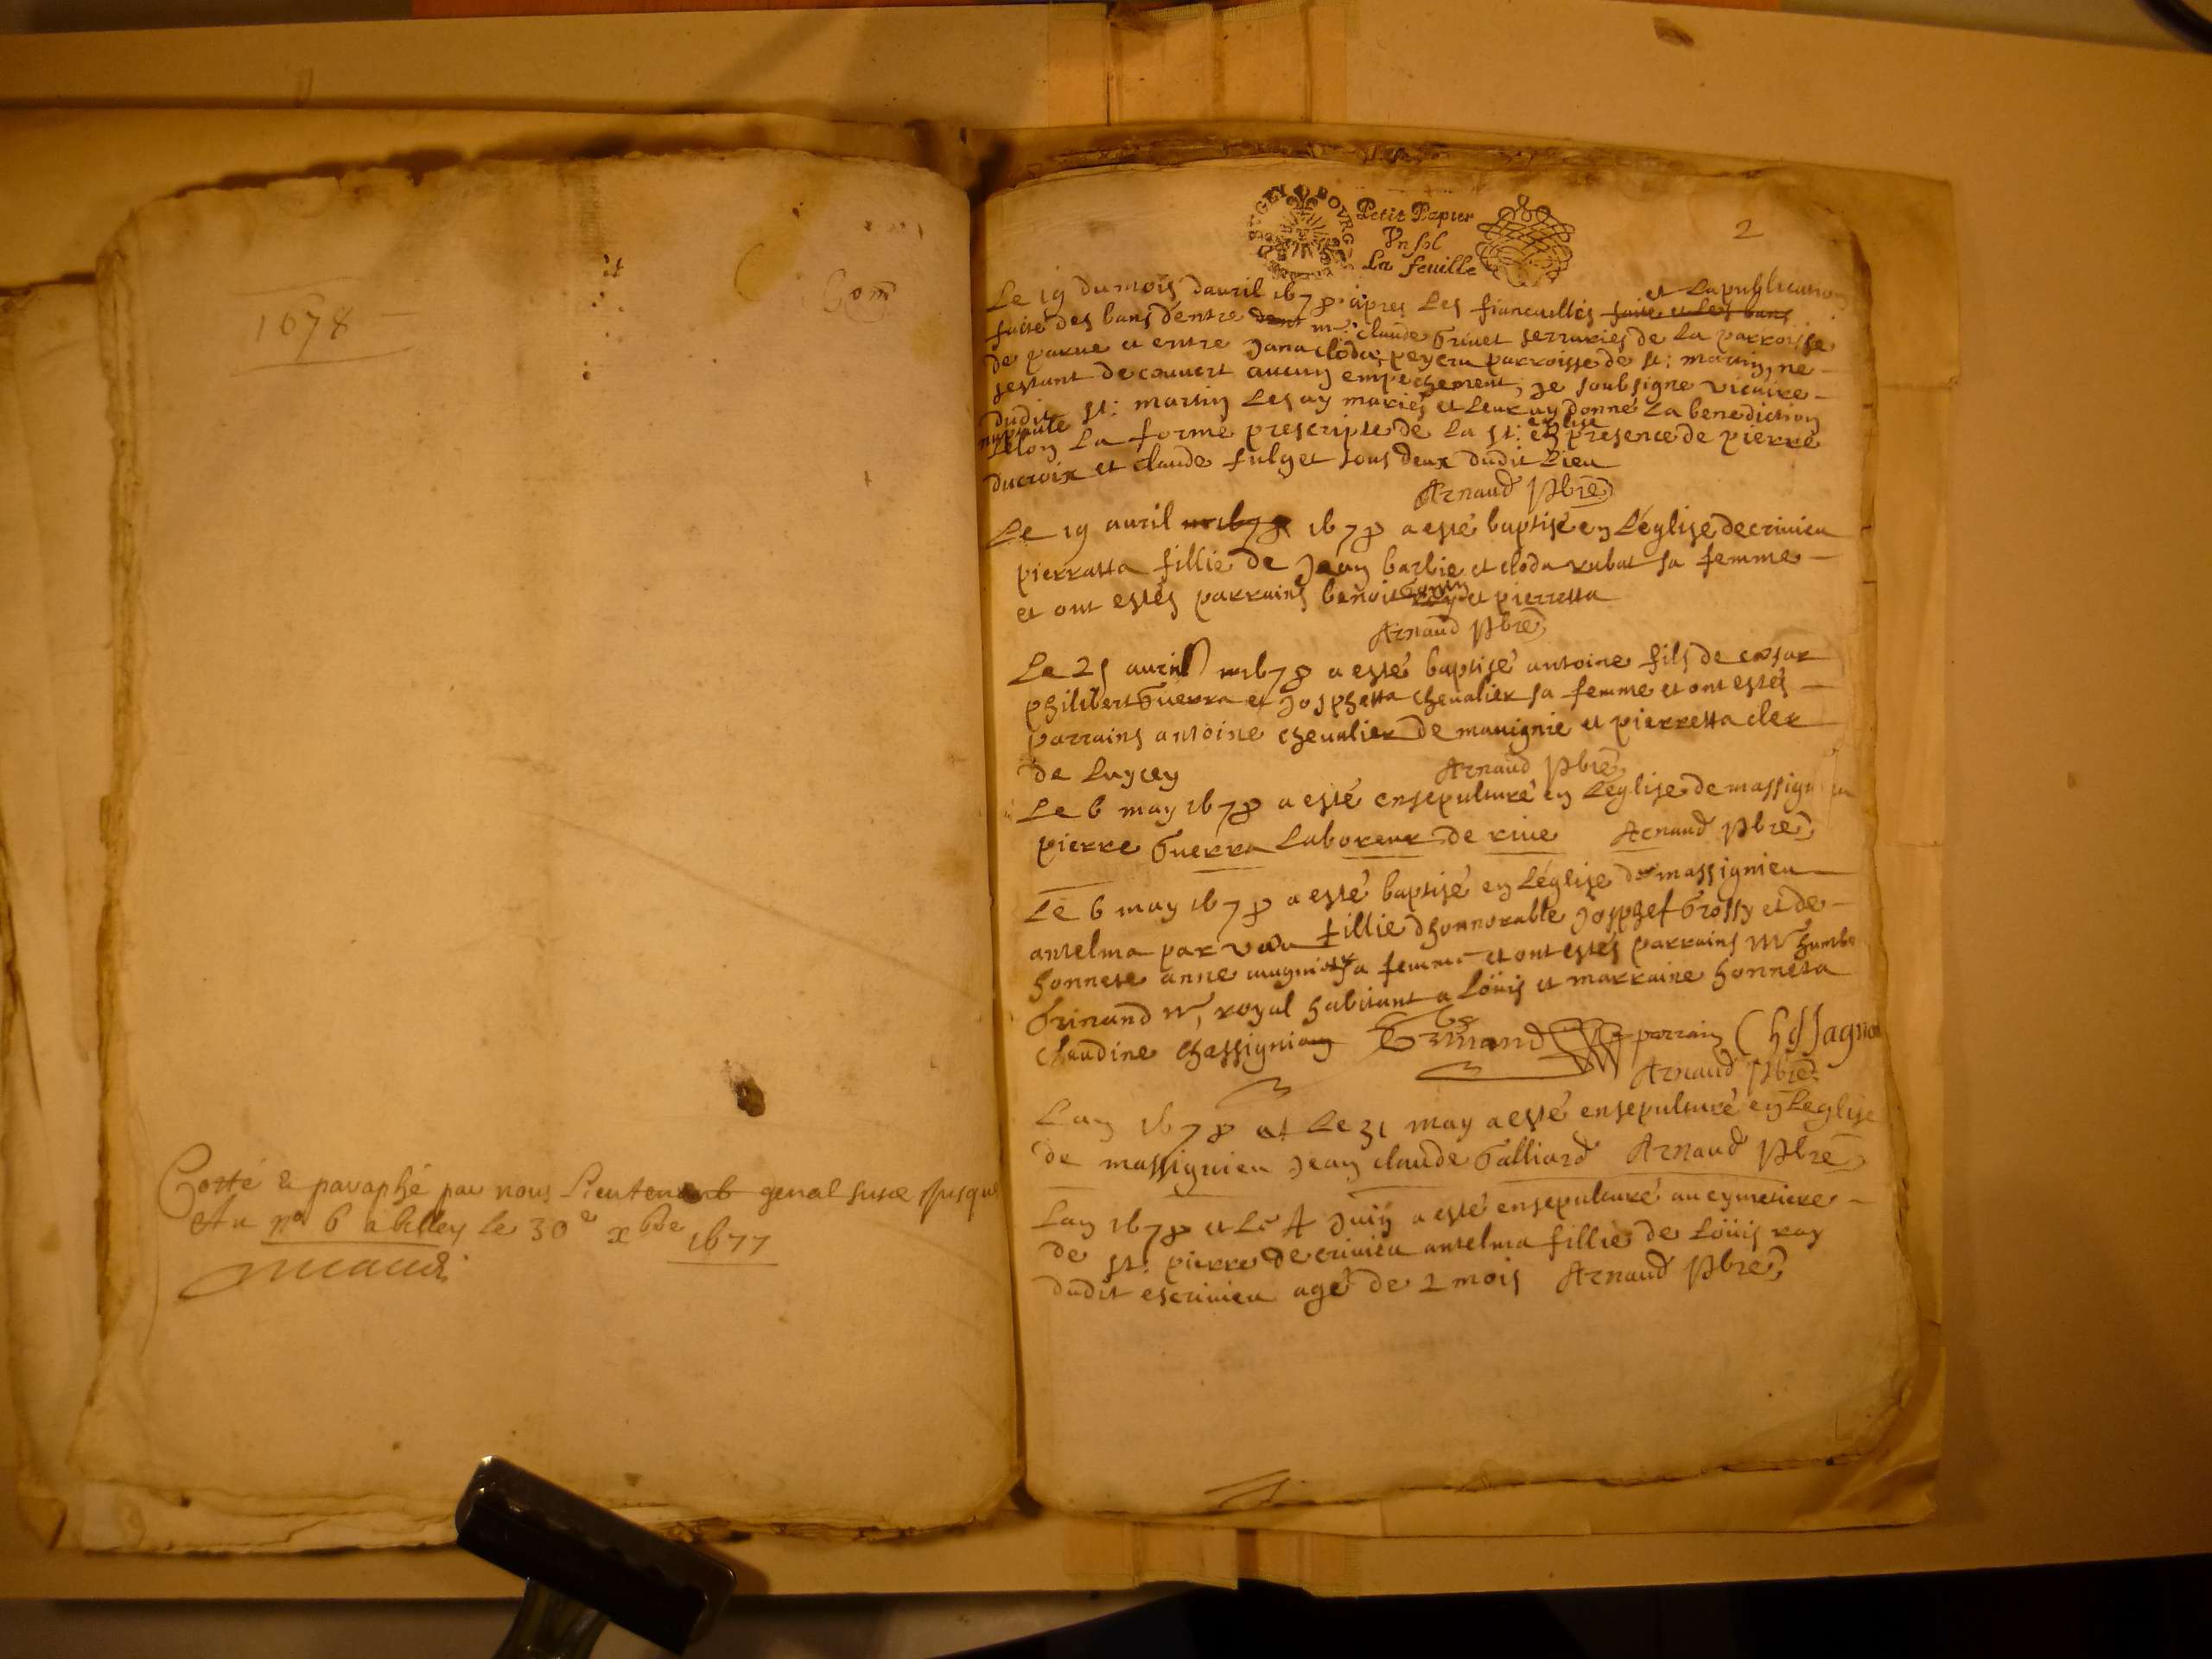 1678
Com
Cotté & paraphé par nous Lieutenant genal susd Jusques
Au no 6 a belley le 30e xbre 1677
BOVRG
Petit Papier
Vn sol
La feuille
2
Le 19 du mois dauril 1678 apres Les fiancailles faite et les bans et La publication
faite des bans dentre dent mre claude Griuet serrurier de La parroisse
de parue et entre Jana cloda peyera parroisse de st: martin, ne
sestant decouuert aucun empechement, je soubsigne vicaire
dudit st: martin Les ay mariés et leur ay donné La benediction
nuptiale selon La forme prescripte de La st: eglise en presence de pierre
ducroix et claude fulget tous deux dudit Lieu
Arnaud pbre
Le 19 auril 1678 a esté baptisé en L'église de crinieu
pierratta fillie de Jean barbie et cloda rubat sa femme
et ont estés parrains benoit et pierretta
Arnaud pbre
Le 25 auril 1678 a esté baptisé antoine fils de cæsar
philibert Guerra et Josphetta cheualier sa femme et ont estés
parrains antoine cheualier de mauignie et pierretta cler
de Luycey
Arnaud pbre
Le 6 may 1678 a esté ensepulturé en L'eglise de massignieu
pierre Guerra Laboreur de riue Arnaud pbre
Le 6 may 1678 a esté baptisé en L'église de massignieu
antelma fillie dhonnorable Josphef Grossy et de
honnete anne sa femme et ont estés parrains Mr humbe
Grinand nre royal habitant a Löuis et marraine honneta
claudine chassignion Grinand parrain Chassagnon
Arnaud pbre
Lan 1678 et Le 31 may a esté ensepulturé en L'eglise
de massignieu Jean claude Galliard Arnaud pbre
Lan 1678 et Le 4 Juin a esté ensepulturé au cymetiere
de st: pierre de crinieu antelma fillie de Löuis ray
dudit escrinieu agé de 2 mois Arnaud pbre